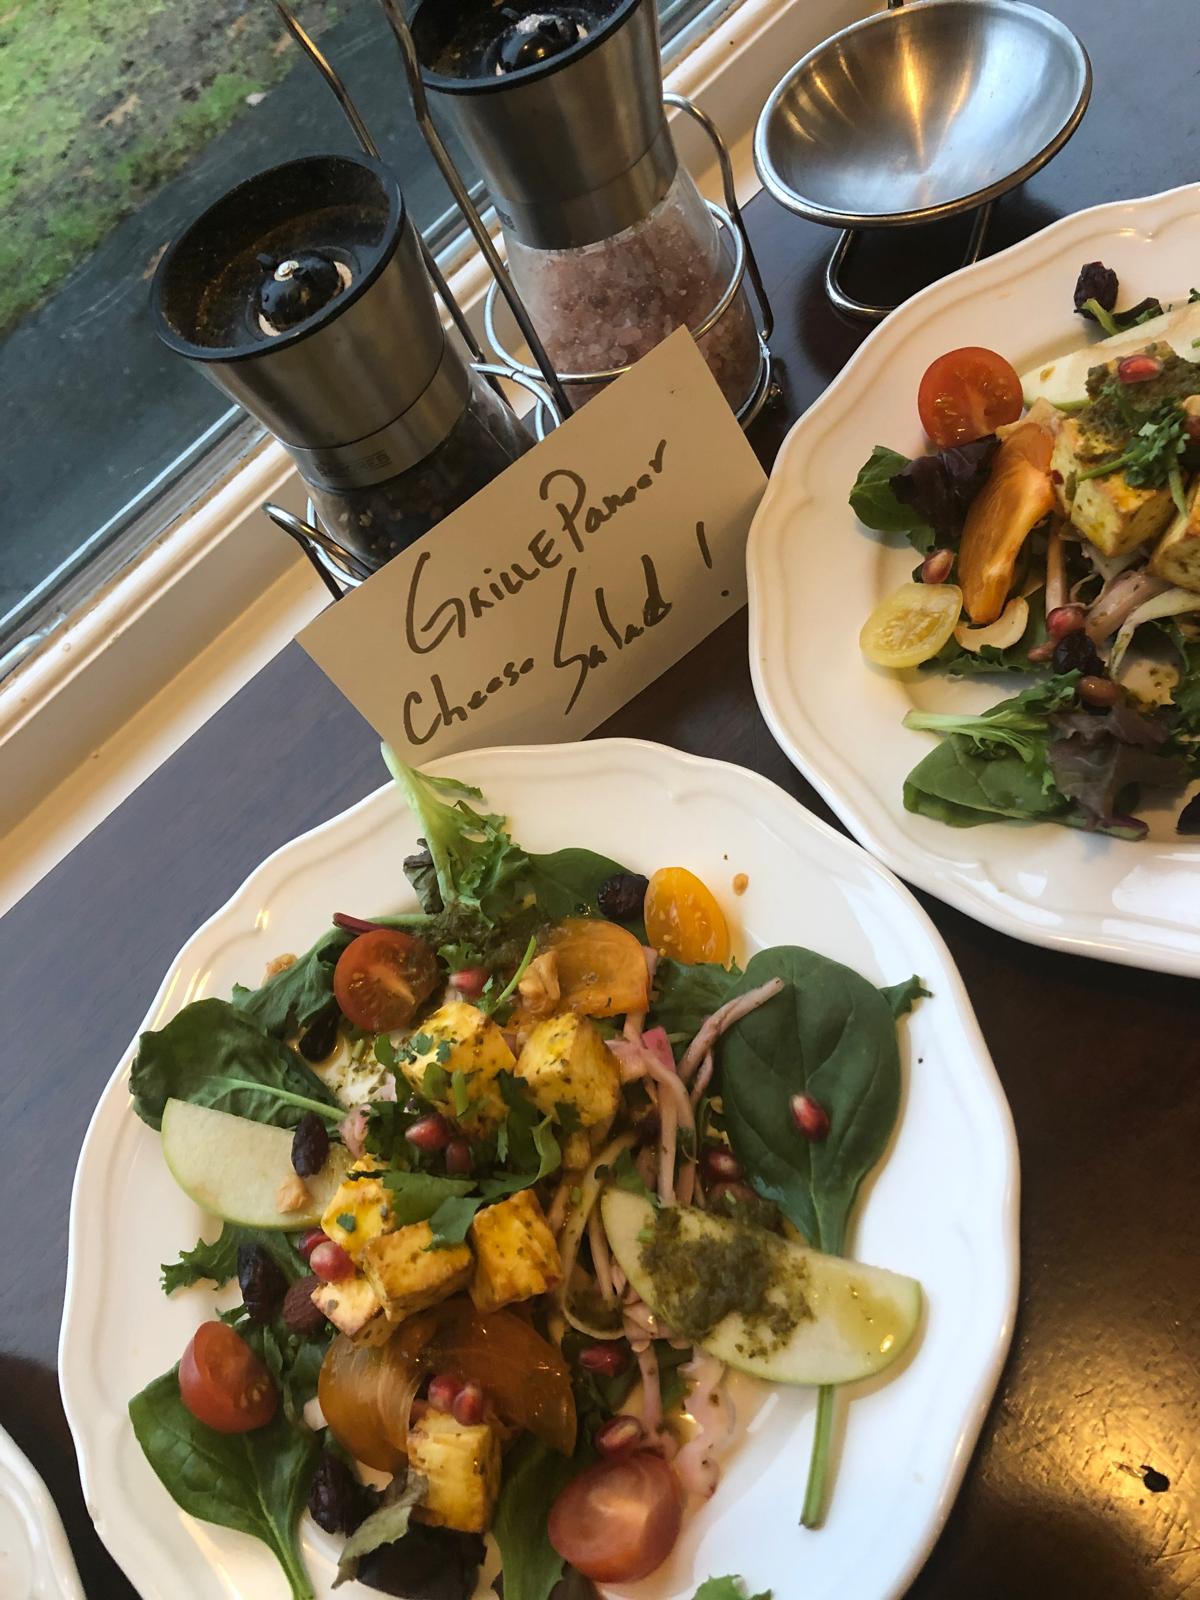 GRILLE Paneer
Cheese Salad !